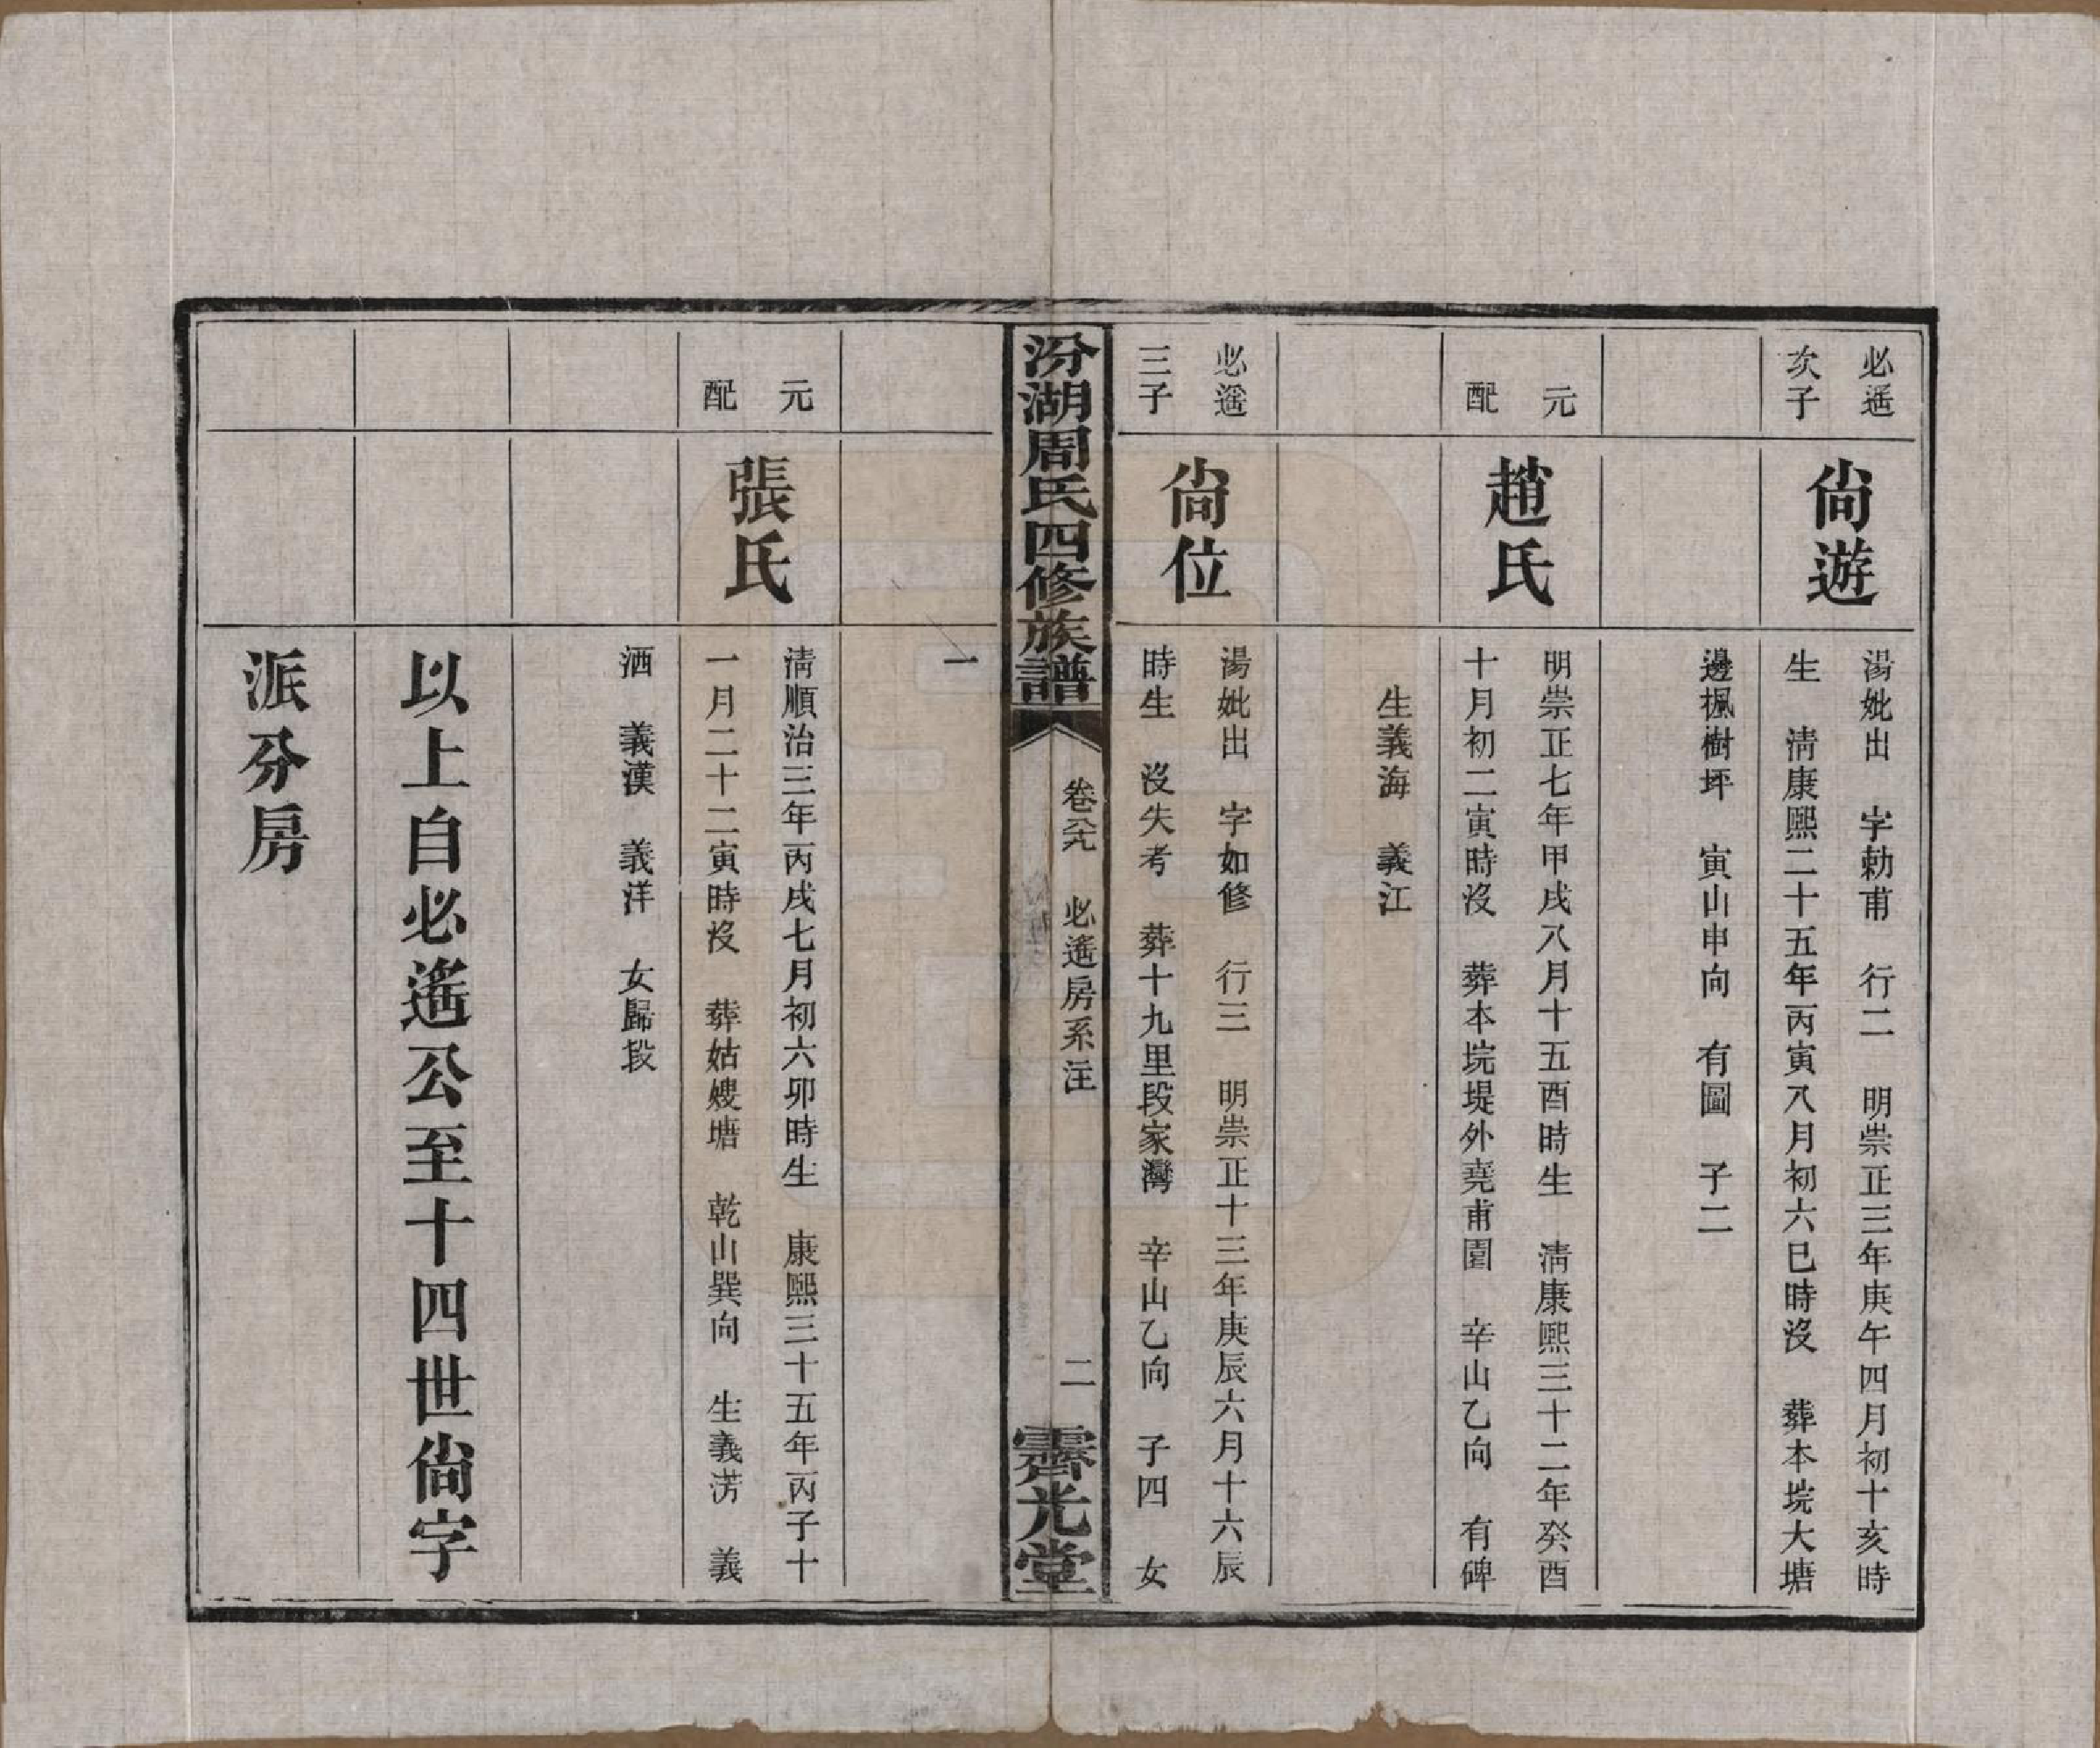 必遙
次子
尙遊
湯妣出　字勅甫　行二　明崇正三年庚午四月初十亥時
生　淸康熙二十五年丙寅八月初六巳時沒　葬本垸大塘
邊楓樹坪　寅山申向　有圖　子二
元
配
趙氏
明崇正七年甲戌八月十五酉時生　淸康熙三十二年癸酉
十月初二寅時沒　葬本垸堤外堯甫園　辛山乙向　有碑
生義海　義江
必遙
三子
尙位
湯妣出　字如修　行三　明崇正十三年庚辰六月十六辰
時生　沒失考　葬十九里段家灣　辛山乙向　子四　女
汾湖周氏四修族譜
卷六九　必遙房系注
二
霽光堂
一
元
配
張氏
淸順治三年丙戌七月初六卯時生　康熙三十五年丙子十
一月二十二寅時沒　葬姑嫂塘　乾山巽向　生義淓　義
洒　義漢　義洋　女歸段
以上自必遙公至十四世尙字
派分房